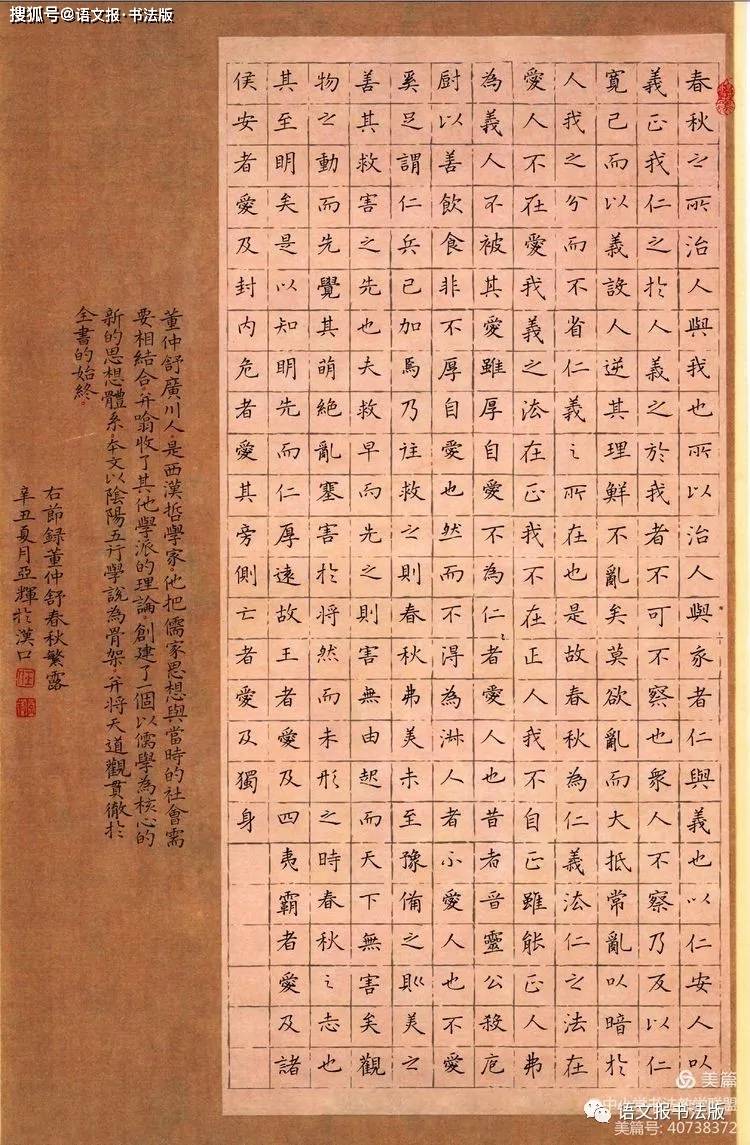 搜狐号@语文报·书法版
春秋之所治人與我也所以治人與我者仁與義也以仁安人以
義正我仁之於人義之於我者不可不察也衆人不察乃反以仁
寬己而以義設人逆其理鮮不亂矣莫欲亂而大抵常亂以暗於
人我之分而不省仁義之所在也是故春秋為仁義法仁之法在
愛人不在愛我義之法在正我不在正人我不自正雖能正人弗
為義人不被其愛雖厚自愛不為仁者愛人也昔者晉靈公殺庖
厨以善飲食非不厚自愛也然而不得為淑人者不愛人也不愛
奚足謂仁兵已加焉乃往救之則春秋弗美未至豫備之則美之
善其救害之先也夫救早而先之則害無由起而天下無害矣觀
物之動而先覺其萌絕亂塞害於將然而未形之時春秋之志也
其至明矣是以知明先而仁厚遠故王者愛及四夷霸者愛及諸
侯安者愛及封内危者愛其旁側亡者愛及獨身
董仲舒廣川人。是西漢哲學家。他把儒家思想與當時的社會需
要相結合。并噏收了其他學派的理論。創建了一個以儒學為核心的
新的思想體系。本文以陰陽五行學說為骨架。并將天道觀貫徹於
全書的始終。
右節録董仲舒春秋繁露
辛丑夏月亞輝於漢口
美篇
中小学书法教学联盟
语文报书法版
美篇号: 40738372